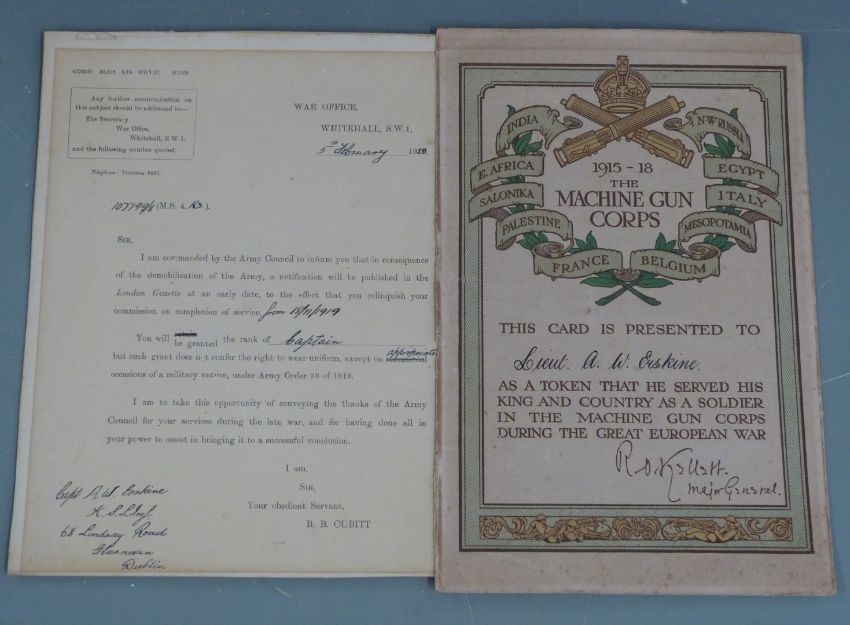 WAR OFFICE,
WHITEHALL, S.W.1,
5th February 1920.
Any further communication on
this subject should be addressed to—
The Secretary
War Office,
Whitehall, S.W.1,
and the following number quoted.
Telephone—Victoria 9400.
107799/8 (M.S. 4, K3).
SIR,
I am commanded by the Army Council to inform you that in consequence
of the demobilization of the Army, a notification will be published in the
London Gazette at an early date, to the effect that you relinquish your
commission on completion of service. from 15/11/1919
You will be granted the rank of Captain
but such grant does not confer the right to wear uniform, except on appropriate
occasions of a military nature, under Army Order 38 of 1918.
I am to take this opportunity of conveying the thanks of the Army
Council for your services during the late war, and for having done all in
your power to assist in bringing it to a successful conclusion.
I am,
Sir,
Your obedient Servant,
B. B. CUBITT
Capt A W. Erskine
68 Lindsay Road
Dublin
INDIA
N.W. RUSSIA
E. AFRICA
EGYPT
SALONIKA
ITALY
PALESTINE
MESOPOTAMIA
FRANCE
BELGIUM
1915 - 18
THE
MACHINE GUN
CORPS
THIS CARD IS PRESENTED TO
Lieut. A. W. Erskine.
AS A TOKEN THAT HE SERVED HIS
KING AND COUNTRY AS A SOLDIER
IN THE MACHINE GUN CORPS
DURING THE GREAT EUROPEAN WAR
Major General.